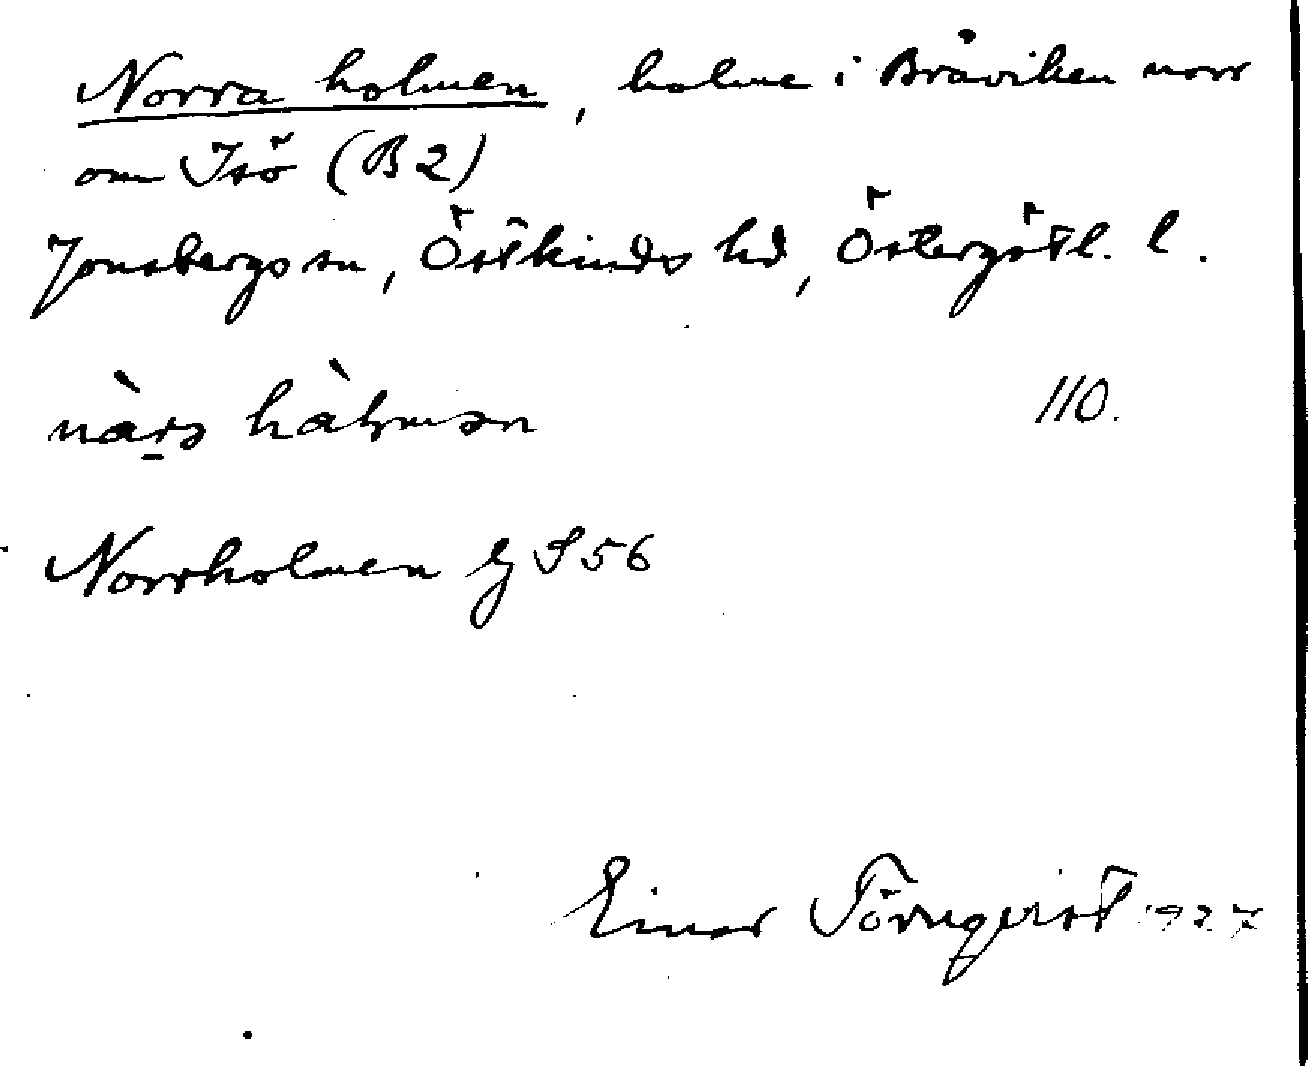 Norra holmen, holme i Bråviken norr
om Isö (B2)
Jonsbergs sn, Östkinds hd, Östergötl. l.
110.
Norrholmen Ej S 56
Einar Törnqvist 1927